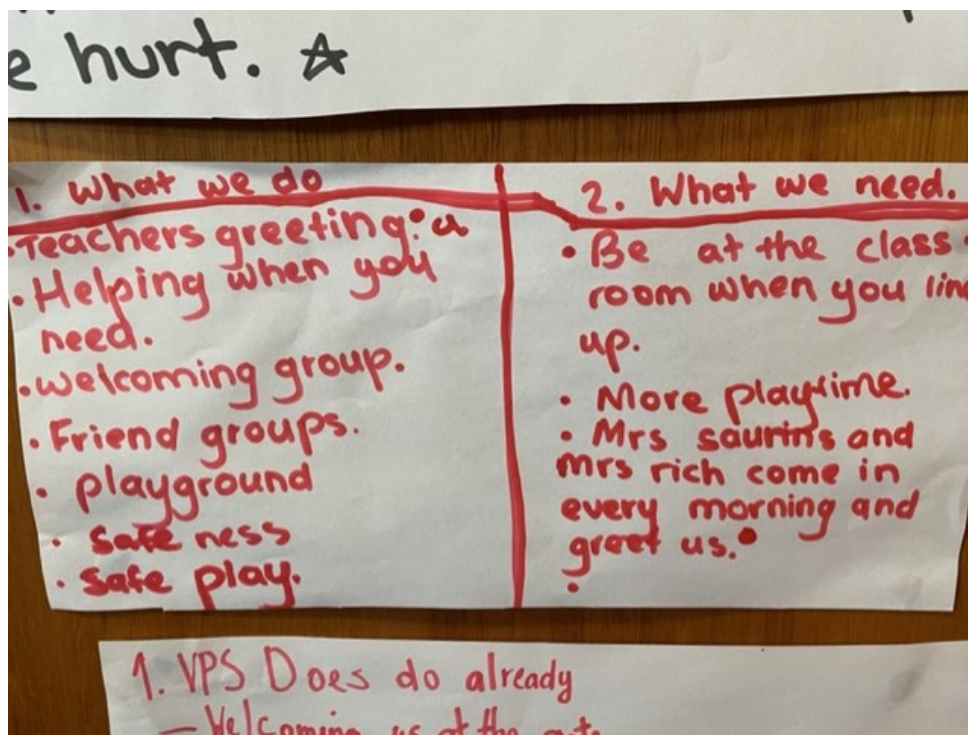 hurt. ☆
1. What we do
• Teachers greeting. a
• Helping when you
need.
• welcoming group.
• Friend groups.
• playground
• Safe ness
• Safe play.
2. What we need.
• Be at the class
room when you line
up.
• More playtime.
• Mrs saurins and
Mrs rich come in
every morning and
greet us.
•
1. VPS Does do already
— Welcoming us at the gate